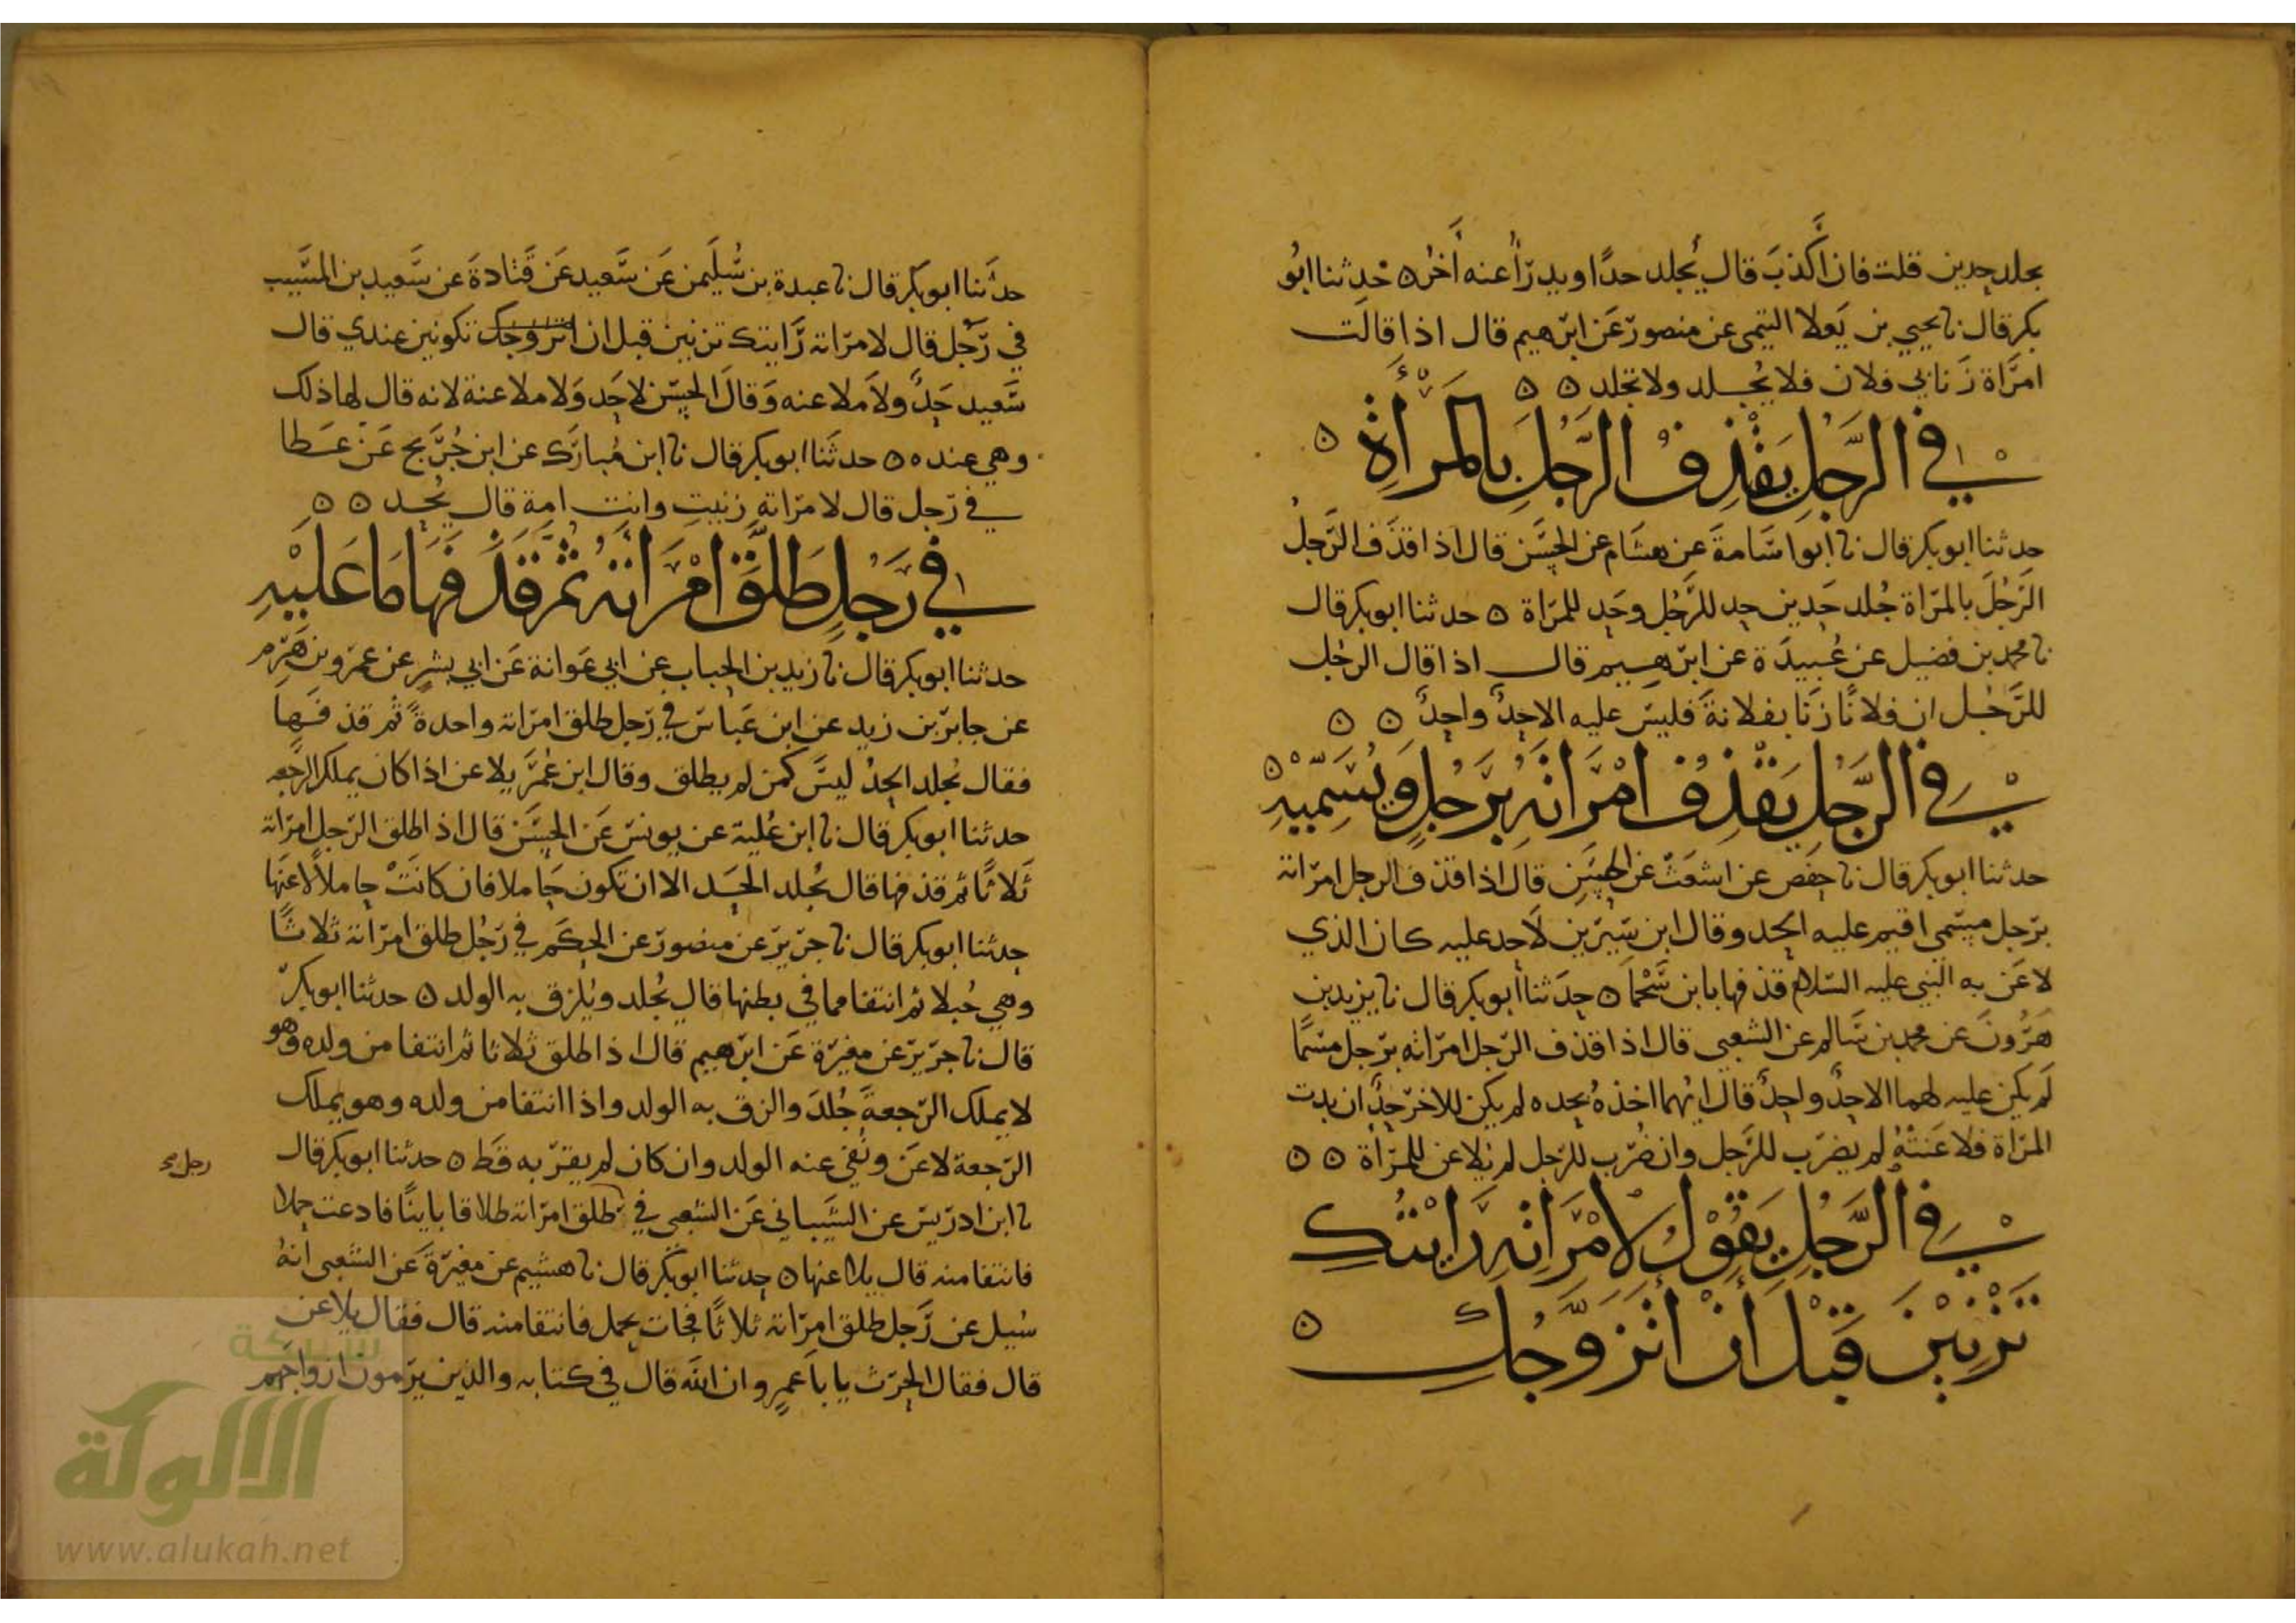 يجلد حدين قلت فان اكذب قال يُجلد حدًا ويدرأ عنه أخر ه حدثنا ابو
بكر قال نا يحيي بن يعلا التيمي عن منصور عن ابرهيم قال اذا قالت
امرأة زنا بي فلان فلا يُجلد ولا تجلد ه ه
في الرَّجل يقذف الرَّجل بالمرأة ه
حدثنا ابو بكر قال نا ابو اسامة عن هشام عن الحسن قال اذا قذف الرَّجلُ
الرَّجُلَ بالمرأة جُلد حدين حد للرَّجُل وحد للمرأة ه حدثنا ابو بكر قال
نا محمد بن فضيل عن عُبيدة عن ابرهيم قال اذا قال الرجُل
للرَّجُل ان فلانًا زنا بفلانة فليس عليه الا حدٌ واحدٌ ه ه
في الرَّجل يقذف امرأته برَجُلٍ ويُسَمّيهِ ه
حدثنا ابو بكر قال نا حفص عن اشعث عن الحسن قال اذا قذف الرجل امرأته
برجل مسمى اقيم عليه الحد وقال ابن سيرين لا حد عليه كان الذي
لاعن به النبي عليه السلام قذفها بابن سَحْمَا ه حدثنا أبو بكر قال نا يزيد بن
هرُونَ عن محمد بن سالم عن الشعبي قال اذا قذف الرَّجل امرأته برجل مسمًا
لم يكن عليه لهما الا حدٌ واحدٌ قال ايُهما اخذهُ بحده لم يكن للاخر حدٌ ان بدت
المرأة فلاعنتْهُ لم يضرب للرَّجل وان ضُرب للرّجل لم يُلاعن للمرأة ه ه
في الرَّجل يقول لامرأته رايتكِ
تَزْنِيْنَ قبل أن أتزوَّجكِ ه
حدَّثنا ابو بكر قال نا عبدة بن سُليمن عن سَعيد عن قَتادةَ عن سَعيد بن المسَيب
في رَجُل قال لامرأته رَايتك تزنين قبل ان اتزوجك تكونين عندي قال
سعيد حدٌّ ولا ملاعنه وقالَ الحسن لا حَد ولا ملاعنة لانه قال لها ذلك
وهي عنده ه ه حدثنا ابو بكر قال نا ابن مُبارَك عن ابن جُرَيج عَنْ عَطا
في رَجل قال لامرأته زنيتِ وانتِ امة قال يُحد ه ه
في رَجُلٍ طَلَّقَ امْرأتهُ ثُم قَذَفَهَا مَا عَلَيْهِ
حدثنا ابو بكر قال نا زيد بن الحباب عن ابي عوانة عن ابي بشر عن عمرو بن هَرِم
عن جابر بن زيد عن ابن عَباس في رَجل طلق امرأته واحدةً ثم قذفها
فقال يُجلد الحدُ ليسَ كمن لم يطلق وقال ابن عُمَرَ يلاعن اذا كان يملك الرجعه
حدثنا ابو بكر قال نا ابن عُلية عن يونس عَن الحسَن قال اذا طلق الرّجل امرأته
ثَلاثًا ثم قذفها قال يُجلد الحد الا ان تكون حَاملا فان كانَتْ حاملاً لاعنها
حدثنا ابو بكر قال نا جرير عن منصور عن الحكَم في رَجُل طلق امرأته ثلاثًا
وهي حُبلا ثم انتفا مما في بطنها قال يُجلد ويُلزق به الولد ه حدثنا ابو بكر
قال نا جرير عن مغيرة عَن ابرهيم قال اذا طلق ثلاثا ثم انتفا من ولده وهو
لا يملك الرّجعةَ جُلدَ والزق به الولد واذا انتفا من ولده وهو يملك
الرّجعة لاعَن ونُفي عنه الولد وان كان لم يقرّ به قَط ه حدثنا ابو بكر قال
رجل صح
نا ابن ادريس عن الشَيباني عَن الشعبي في طلق امرأته طلاقا باينًا فادعت حملا
فانتفا منه قال يلاعنها ه حدثنا ابو بكر قال نا هشيم عن مغيرة عَن الشعبي أنهُ
سُيل عن رَّجل طلق امرأته ثلاثًا فجات بحمل فانتفا منه قال فقال يلاعن
قال فقال الحرث يا با عمرو ان الله قال في كتابه والذين يرمون ازواجهم
شبكة
الألوكة
www.alukah.net